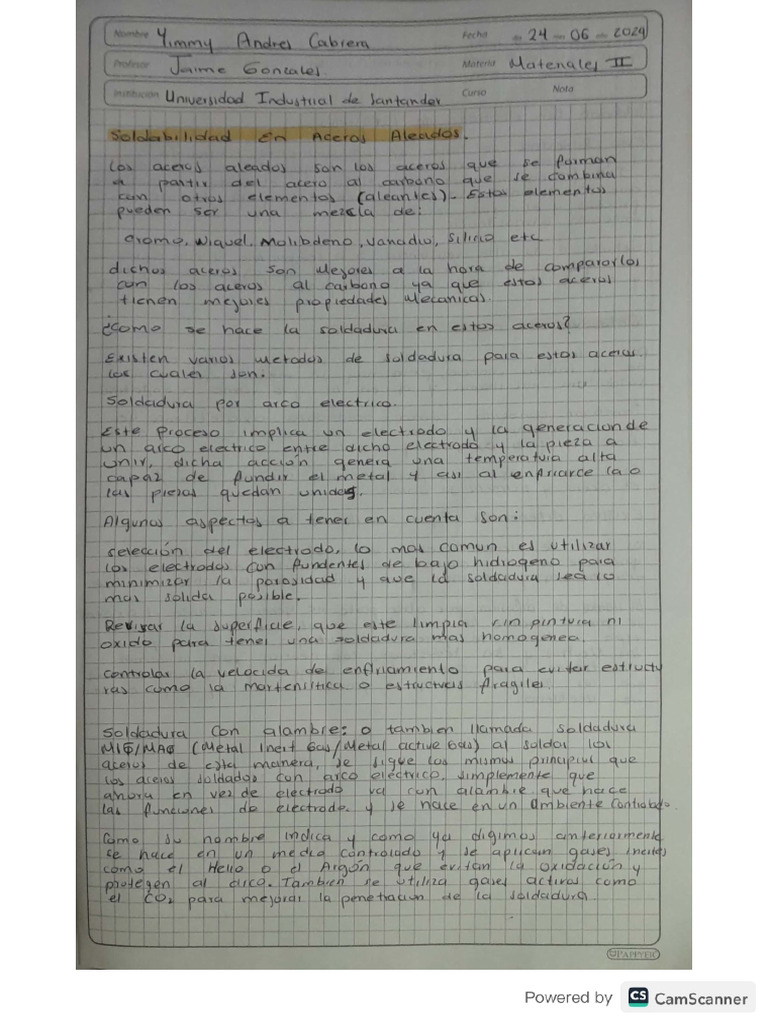 Nombre Yimmy Andres Cabrera Fecha 24 06 2024
Profesor Jaime Gonzales Materia Materiales II
Institución Universidad Industrial de Santander Curso Nota
Soldabilidad en Aceros Aleados.
Los aceros aleados son los aceros que se forman
a partir del acero al carbono que se combina
con otros elementos (aleantes). Estos elementos
pueden ser una mezcla de:
Cromo, Niquel, Molibdeno, Vanadio, Silicio etc
dichos aceros son Mejores a la hora de compararlos
con los aceros al carbono ya que estos aceros
tienen mejores propiedades Mecanicas.
¿Como se hace la soldadura en estos aceros?
Existen varios metodos de soldadura para estos aceros.
los cuales son:
Soldadura por arco electrico.
Este Proceso implica un electrodo y la generacion de
un arco electrico entre dicho electrodo y la pieza a
unir, dicha acción genera una temperatura alta
capaz de fundir el metal y asi al enfriarce la o
las piezas quedan unidas.
Algunos aspectos a tener en cuenta son:
selección del electrodo, lo mas comun es utilizar
los electrodos con fundentes de bajo hidrogeno para
minimizar la porosidad y que la soldadura sea lo
mas solida posible.
Revisar la superficie, que este limpia sin pintura ni
oxido para tener una soldadura mas homogenea.
controlar la velocida de enfriamiento para evitar estructu
ras como la martensitica o estructuras fragiles
Soldadura Con alambre: o tambien llamada soldadura
MIG/MAG (Metal Inert Gas/Metal active Gas) al soldar los
aceros de esta manera, se sigue los mismos principios que
los aceros soldados con arco eléctrico, simplemente que
ahora en vez de electrodo va con alambre que hace
las funciones de electrodo. y se hace en un ambiente Controlado.
Como su nombre indica y como ya digimos anteriormente
se hace en un medio controlado y se aplican gases inertes
como el Helio o el Argón que evitan la oxidación y
protegen al arco. Tambien se utiliza gases activos como
el CO₂ para mejorar la penetracion de la soldadura.
PAPPYER
Powered by CS CamScanner